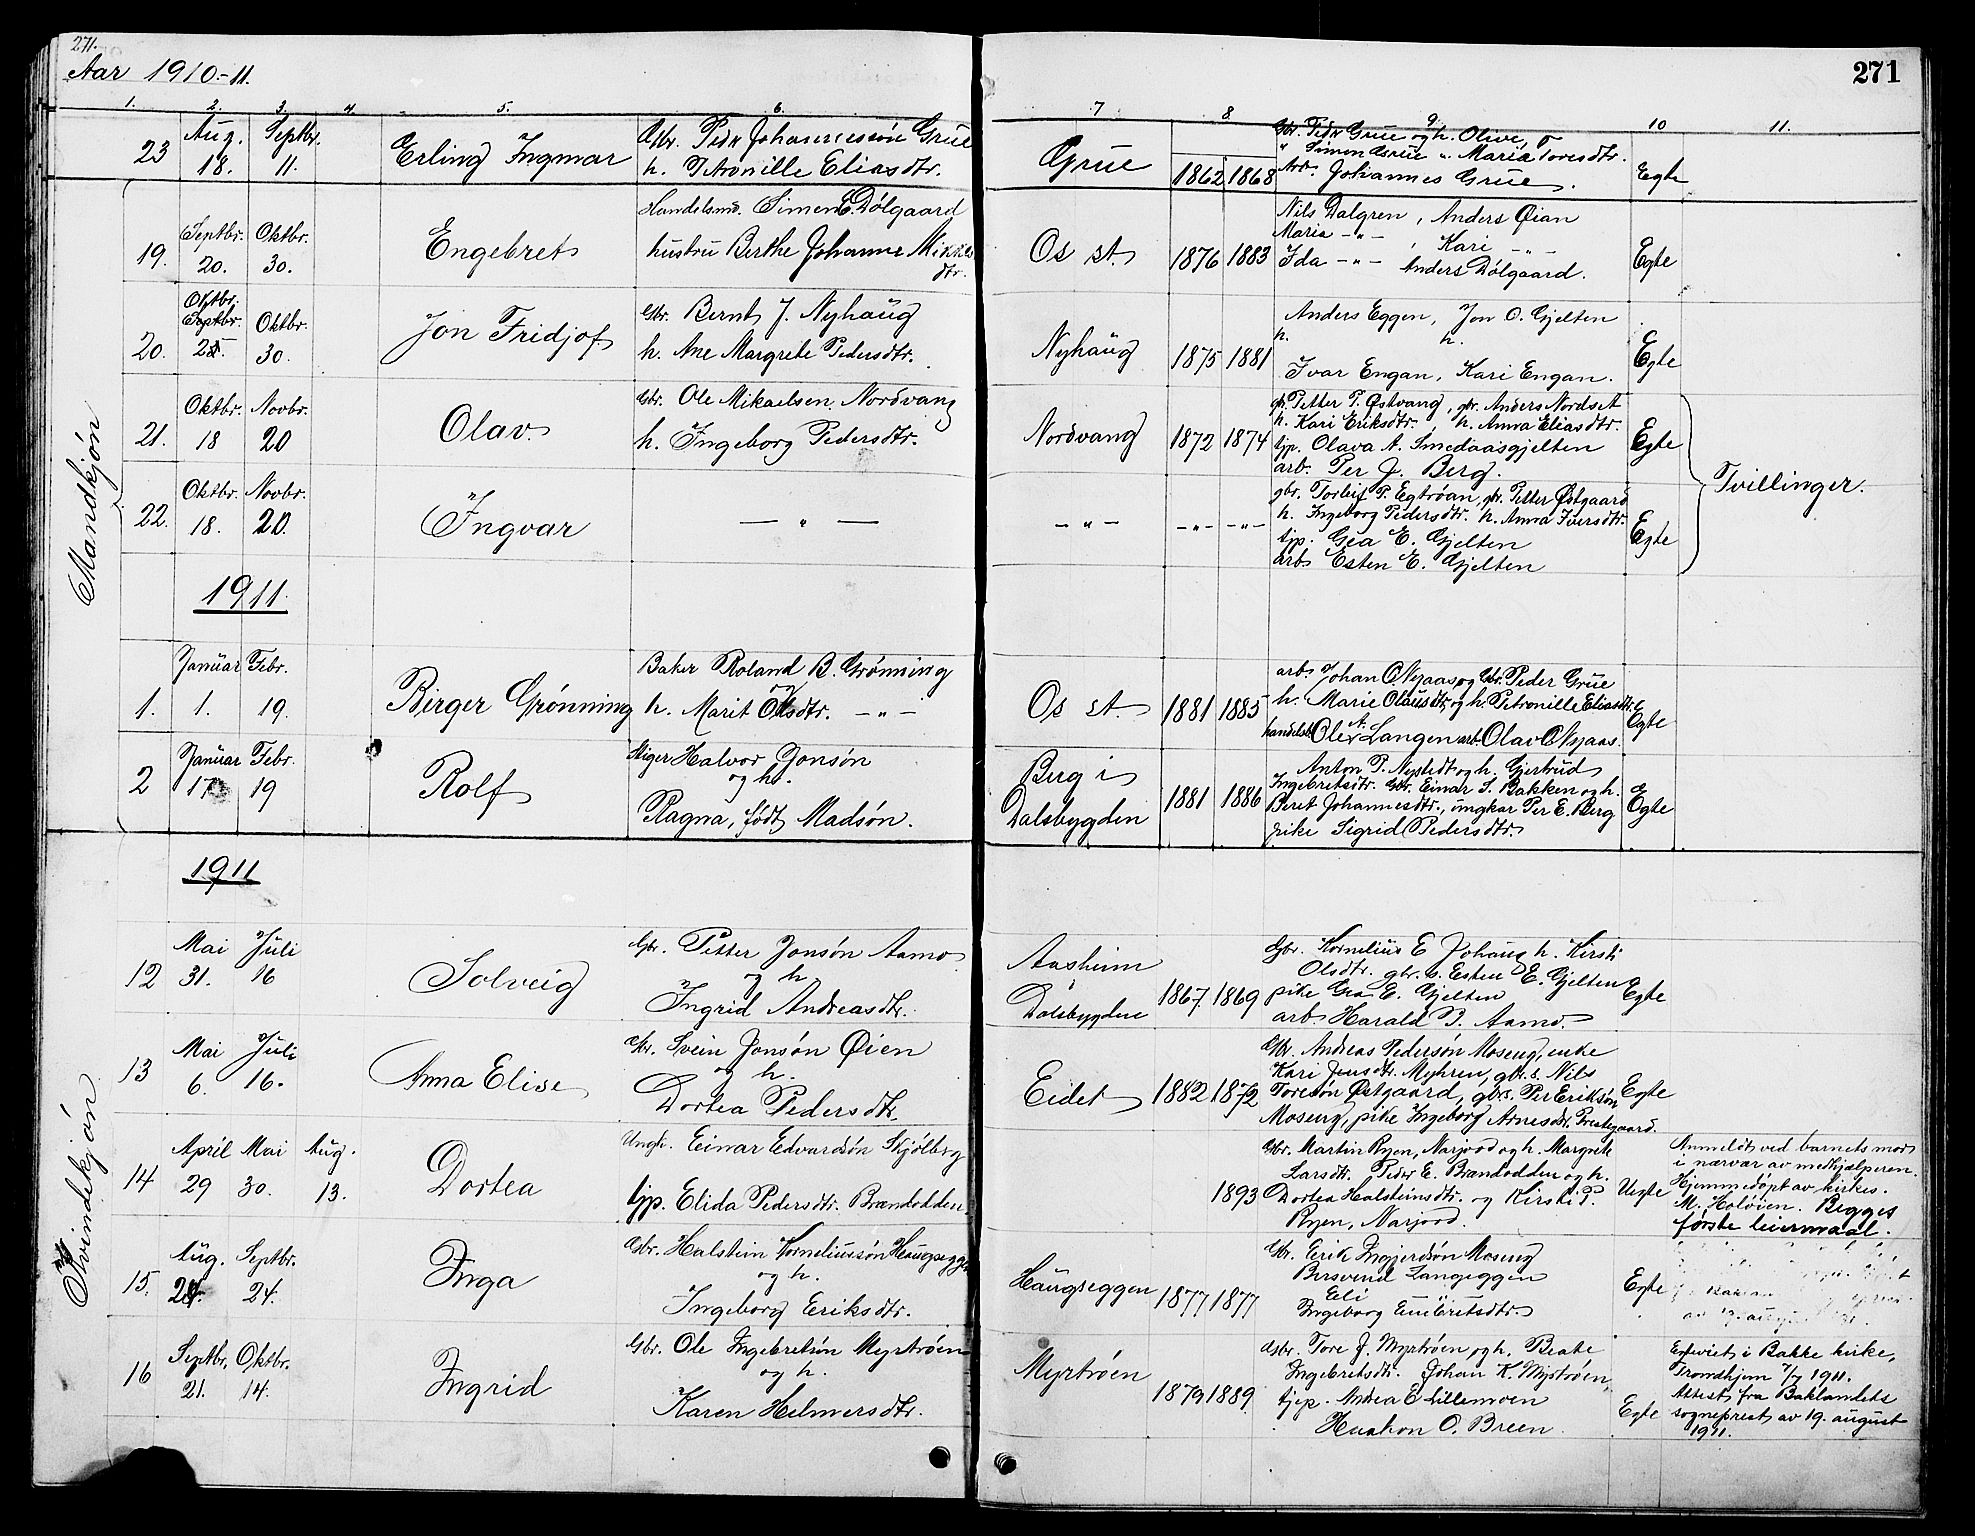 271.
Aar 1910-11.
271
1. 2. 3. 4. 5. 6. 7 8 9. 10 11.
Mandkjøn
23 Aug. 18. Septbr. 11. Erling Ingmar
Gbr. Peder Johannessøn Grue
h. Petronille Eliasdtr.
Grue 1862 1868
Gbr. Peder Grue og h. Olive,
" Simon Grue " Maria Toresdtr.
Arb. Johannes Grue.
Egte
19. Septbr. 20. Oktbr. 30. Engebret
Handelsmd. Simen E. Dølgaard
hustru Berthe Johanne Mikkels
dtr.
Os st. 1876 1883
Nils Dalgren, Anders Øian
Maria -"- , Kari -"-
Ida -"- Anders Dølgaard.
Egte
20. Oktbr. Septbr. 25. Oktbr. 30. Jon Fridjof
Gbr. Bernt J. Nyhaug
h. Ane Margrete Pedersdtr.
Nyhaug 1875 1881
Anders Eggen, Jon O. Gjelten
h. h.
Ivar Engan, Kari Engan.
Egte
21. Oktbr. 18 Novbr. 20 Olav.
Gbr. Ole Mikaelsen Nordvang
h. Ingeborg Pedersdtr.
Nordvang 1872 1874
gb. Petter P. Østvang, gbr. Anders Nordset
h. Kari Eriksdtr. h. Anna Eliasdtr.
tjp. Olava A. Smedaasgjelten
arb. Per J. Berg.
Egte
Tvillinger.
22. Oktbr. 18. Novbr. 20. Ingvar
— " —
-"- -"- -"-
gbr. Torleif P. Egtrøan, gbr. Petter Østgaard
h. Ingeborg Pedersdtr. h. Anna Iversdtr.
tjp. Gea E. Gjelten
arb. Esten E. Gjelten
Egte
1911.
1. Januar 1. Febr. 19. Birger Grønning
Baker Roland B. Grønning
h. Marit Olsdtr. -"-
Os st. 1881 1885
arb. Johan O. Nyaas og Gbr. Peder Grue
h. Marie Olausdtr. og h. Petronille Eliasdtr.
handelsb. Ole A. Langen arb. Olav O. Nyaas.
Egte
2 Januar 17 Febr. 19 Rolf
Stiger Halvor Jonsøn
og h.
Ragna, født Madsøn.
Berg i
Dalsbygden
1881 1886
Anton P. Nystedt og h. Gjertrud
Ingebretsdtr. Gbr. Einar S. Bakken og h.
Beret Johannesdtr., ungkar Per E. Berg
pike Sigrid Pedersdtr.
Egte
Kvindekjøn
1911
12 Mai 31. Juli 16 Solveig
Gbr. Petter Jonsøn Aamo
og h.
Ingrid Andreasdtr.
Aasheim
Dalsbygden
1867 1869
Gbr. Kornelius E Johaug h. Kirsti
Olsdtr. gbr. s. Esten E. Gjelten
pike Gea E. Gjelten
arb. Harald J. Aamo.
Egte
13 Mai 6. Juli 16. Anna Elise
Gbr. Svein Jonsøn Øien
og h.
Dortea Pedersdtr.
Eidet 1882 1872
Gbr. Andreas Pedersøn Moseng, enke
Kari Jensdtr. Myhren, gbr. s. Nils
Toresøn Østgaard, gbr. s. Per Eriksøn
Moseng, pike Ingeborg Arnesdtr. Prestegaard.
Egte
14 April 29 Mai 30. Aug. 13. Dortea
Ungk. Einar Edvardsøn Skjølberg
tjp. Elida Pedersdtr. Brændodden.
1893
Gbr. Martin Ryen, Narjord og h. Margrete
Larsdtr. Peder E. Brændodden og h.
Dortea Halsteinsdtr. og Kirsti P.
Ryen, Narjord.
Uegte
Anmeldt ved barnets mor
i nærvær av medhjælperen.
Hjemmedøpt av kirkes.
M. Holøien. Begges
første leiermaal.
15. Aug. 24. Septbr. 24. Inga
Gbr. Halstein Korneliussøn Haugseggen
og h.
Ingeborg Eriksdtr.
Haugseggen 1877 1877
Gbr. Erik Ingjerdsøn Moseng
Bersvend Langeggen
Eli "
Ingeborg Embretsdtr.
Egte
16 Septbr. 21. Oktbr. 14. Ingrid
Gbr. Ole Ingebretsøn Myrtrøen
og h.
Karen Helmersdtr.
Myrtrøen 1879 1889
Gbr. Tore J. Myrtrøen og h. Beate
Ingebretsdtr. Johan K. Myrtrøen,
tjep. Andrea E Lillemoen
Haakon O. Breen
Egte
Egteviet i Bakke kirke,
Trondhjem 7/7 1911.
Attest fra Baklandets
sogneprest av 19. august
1911.